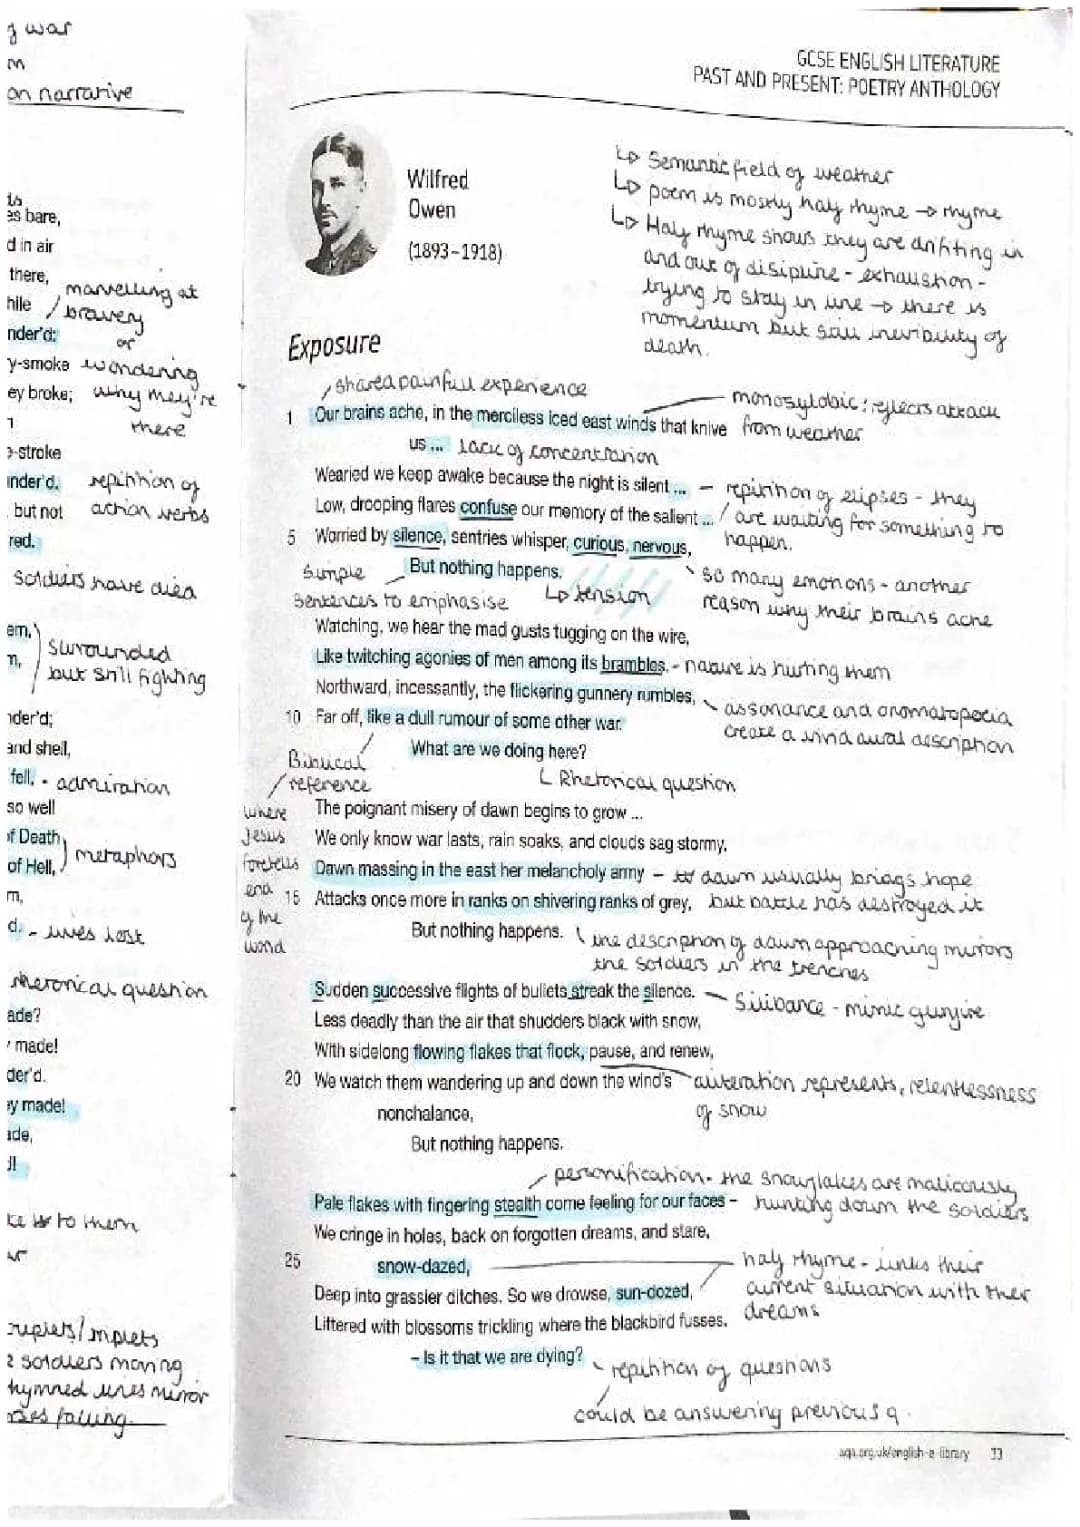 g war
m
on narrative
ts
es bare,
d in air
there,
marvelling at
hile
bravery
nder'd:
or
y-smoke wondering
ey broke; why they're
there
e-stroke
nder'd. repitition of
but not action verbs
red.
soldiers have died
em,
surrounded
m,
but still fighting
nder'd;
and shell,
fell, - admiration
so well
of Death
metaphors
of Hell,
m,
d. - lives lost
rhetorical question
ade?
made!
der'd.
ey made!
ade,
d!
to them
ar
couplets/triplets
soldiers moving
rhymed lines mirror
falling.
GCSE ENGLISH LITERATURE
PAST AND PRESENT: POETRY ANTHOLOGY
Wilfred
Owen
(1893–1918)
↳ Semantic field of weather
↳ poem is mostly half rhyme → rhyme
↳ Half rhyme shows they are drifiting in
and out of disipline - exhaustion -
trying to stay in line → there is
momentum but still inevibility of
death.
Exposure
shared painfull experience
monosyllabic: reflects attack
from weather
1 Our brains ache, in the merciless iced east winds that knive
us ... lack of concentration
Wearied we keep awake because the night is silent ... - repitition of elipses - they
Low, drooping flares confuse our memory of the salient ... are waiting for something to
happen.
5 Worried by silence, sentries whisper, curious, nervous,
But nothing happens.
Simple
sentences to emphasise
↳ tension
so many emotions - another
reason why their brains ache
Watching, we hear the mad gusts tugging on the wire,
Like twitching agonies of men among its brambles. - nature is hurting them
Northward, incessantly, the flickering gunnery rumbles,
assonance and onomatopoeia
create a vivid aural description
10 Far off, like a dull rumour of some other war.
What are we doing here?
Biblical
reference
where
Jesus
foretells
end
of the
world
Rhetorical question
The poignant misery of dawn begins to grow ...
We only know war lasts, rain soaks, and clouds sag stormy.
Dawn massing in the east her melancholy army - dawn usually brings hope
15 Attacks once more in ranks on shivering ranks of grey, but battle has destroyed it
But nothing happens. the description of dawn approaching mirrors
the soldiers in the trenches
Sudden successive flights of bullets streak the silence. - Silibance - mimic gunfire
Less deadly than the air that shudders black with snow,
With sidelong flowing flakes that flock, pause, and renew,
20 We watch them wandering up and down the wind's
nonchalance,
alliteration represents relentlessness
of snow
But nothing happens.
personification - the snowflakes are malicously
Pale flakes with fingering stealth come feeling for our faces – hunting down the soldiers
We cringe in holes, back on forgotten dreams, and stare,
25 snow-dazed,
half rhyme - links their
current situation with their
dreams
Deep into grassier ditches. So we drowse, sun-dozed,
Littered with blossoms trickling where the blackbird fusses.
– Is it that we are dying?
repitition of questions
could be answering previous q.
aqa.org.uk/english-e-library 33